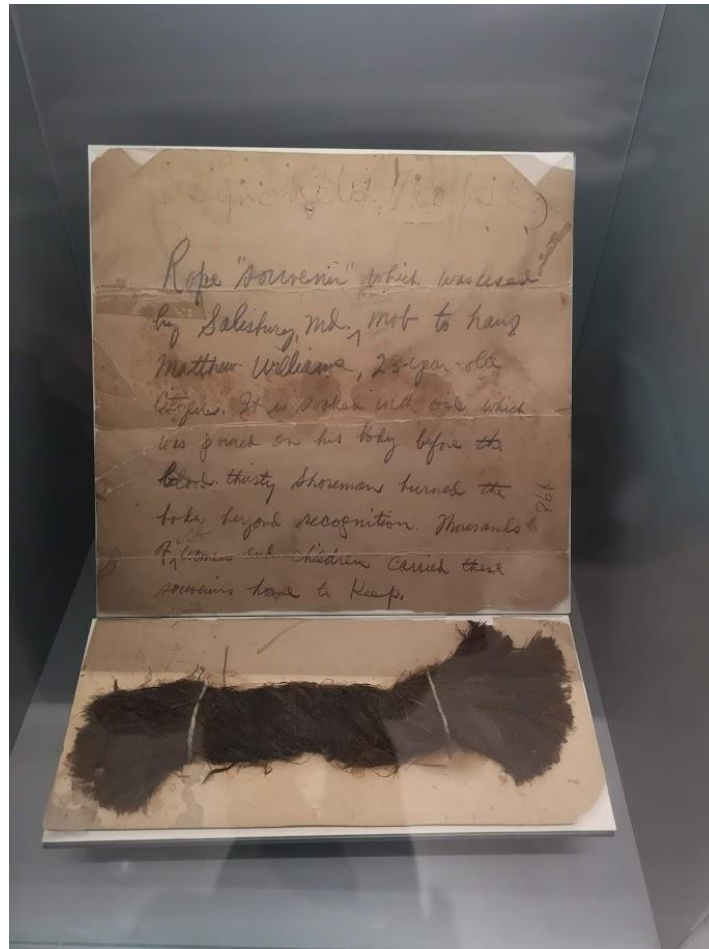 Rope "souvenir" which was used
by Salisbury, Md. mob to hang
Matthew Williams, 23-year-old
Citizen. It is soaked with oil which
was poured on his body before the
blood-thirsty shoremen burned the
body beyond recognition. Thousands
of women and children carried these
souvenirs home to Keep.